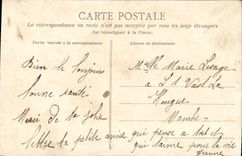 CARTE POSTALE
La correspondance au recto n'est pas acceptée par tous les pays étrangers
(Se renseigner à la Poste)
Partie réservée à la correspondance
Adresse du destinataire
Bien le bonjour
bonne santé
Merci de ta jolie
lettre ta petite amie qui pense a toi et
qui t'aime pour la vie
Mlle Marie Lesage
a St Vaast La
Hougue
Manche